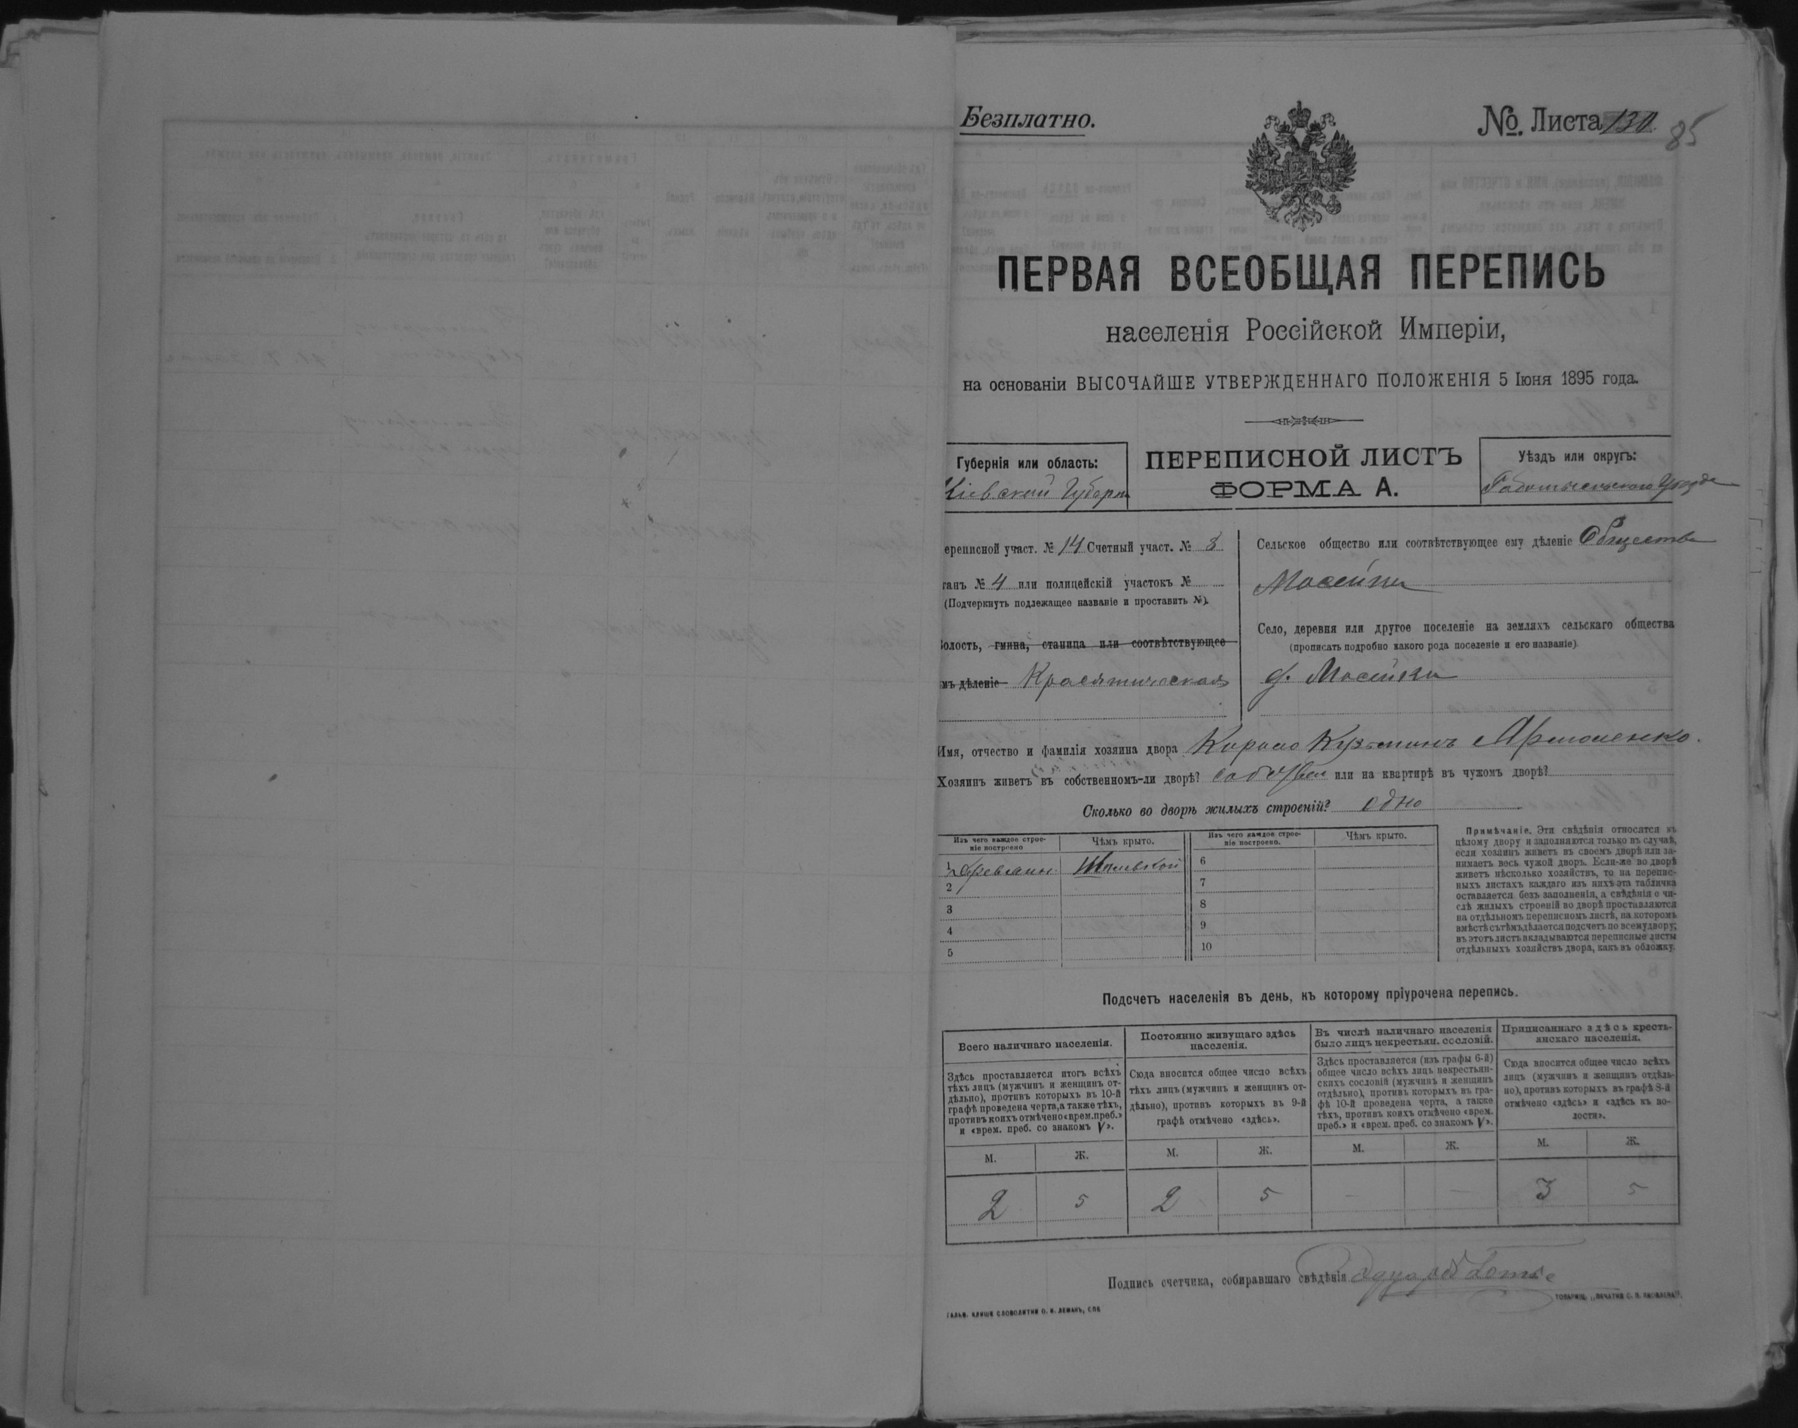 Безплатно.
№. Листа 130
85
ПЕРВАЯ ВСЕОБЩАЯ ПЕРЕПИСЬ
населенія Россійской Имперіи,
на основаніи ВЫСОЧАЙШЕ УТВЕРЖДЕННАГО ПОЛОЖЕНІЯ 5 Іюня 1895 года.
Губернія или область:
Кіевской Губерн
ПЕРЕПИСНОЙ ЛИСТЪ
ФОРМА А.
Уѣздъ или округъ:
ереписной участ. № 14 Счетный участ. № 3
танъ № 4 или полицейскій участокъ №
(Подчеркнуть подлежащее названіе и проставить №).
олость, гмина, станица или соотвѣтствующее
мъ дѣленіе Красятическая
Сельское общество или соотвѣтствующее ему дѣленіе Общество
Село, деревня или другое поселеніе на земляхъ сельскаго общества
(прописать подробно какого рода поселеніе и его названіе)
Имя, отчество и фамилія хозяина двора Кузьминъ
Хозяинъ живетъ въ собственномъ-ли дворѣ? или на квартирѣ въ чужомъ дворѣ?
Сколько во дворѣ жилыхъ строеній? одно
Изъ чего каждое строе-
ніе построено
Чѣмъ крыто.
Изъ чего каждое строе-
ніе построено.
Чѣмъ крыто.
1
2
3
4
5
6
7
8
9
10
Примѣчаніе. Эти свѣдѣнія относятся къ
цѣлому двору и заполняются только въ случаѣ,
если хозяинъ живетъ въ своемъ дворѣ или за-
нимаетъ весь чужой дворъ. Если-же во дворѣ
живетъ нѣсколько хозяйствъ, то на перепис-
ныхъ листахъ каждаго изъ нихъ эта табличка
оставляется безъ заполненія, а свѣдѣнія о чи-
слѣ жилыхъ строеній во дворѣ проставляются
на отдѣльномъ переписномъ листѣ, на которомъ
вмѣстѣ съ тѣмъ дѣлается подсчетъ по всему двору;
въ этотъ листъ вкладываются переписные листы
отдѣльныхъ хозяйствъ двора, какъ въ обложку.
Подсчетъ населенія въ день, къ которому пріурочена перепись.
Всего наличнаго населенія.
Здѣсь проставляется итогъ всѣхъ
тѣхъ лицъ (мужчинъ и женщинъ от-
дѣльно), противъ которыхъ въ 10-й
графѣ проведена черта, а также тѣхъ,
противъ коихъ отмѣчено «врем. преб.»
и «врем. преб. со знакомъ V».
Постоянно живущаго здѣсь
населенія.
Сюда вносится общее число всѣхъ
тѣхъ лицъ (мужчинъ и женщинъ от-
дѣльно), противъ которыхъ въ 9-й
графѣ отмѣчено «здѣсь».
Въ числѣ наличнаго населенія
было лицъ некрестьян. сословій.
Здѣсь проставляется (изъ графы 6-й)
общее число всѣхъ лицъ некрестьян-
скихъ сословій (мужчинъ и женщинъ
отдѣльно), противъ которыхъ въ гра-
фѣ 10-й проведена черта, а также
тѣхъ, противъ коихъ отмѣчено «врем.
преб.» и «врем. преб. со знакомъ V».
Приписаннаго здѣсь кресть-
янскаго населенія.
Сюда вносится общее число всѣхъ
лицъ (мужчинъ и женщинъ отдѣль-
но), противъ которыхъ въ графѣ 8-й
отмѣчено «здѣсь» и «здѣсь въ во-
лости».
М. Ж. М. Ж. М. Ж. М. Ж.
2 5 2 5 - - 3 5
Подпись счетчика, собиравшаго свѣдѣнія Эдуардъ
ГАЛЬВ. КЛИШЕ СЛОВОЛИТНИ О. И. ЛЕМАНЪ, СПБ
ТОВАРИЩ. „ПЕЧАТНЯ С. П. ЯКОВЛЕВА".